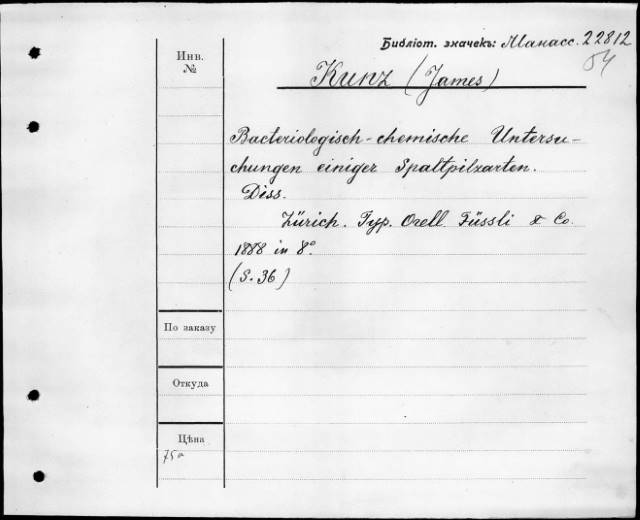 Библіот. значекъ: Манасс. 22812
54
Инв.
№
Kunz (James)
Bacteriologisch-chemische Untersu-
chungen einiger Spaltpilzarten.
Diss.
Zürich. Typ. Orell Füssli & Co.
1888 in 8°.
(S. 36)
По заказу
Откуда
Цѣна